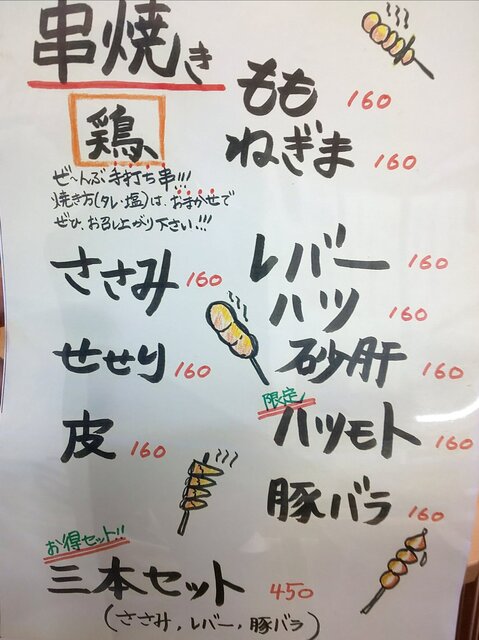 串焼き
鶏
ぜ〜んぶ手打ち串!!!
焼き方(タレ・塩)は、おまかせで
ぜひ、お召し上がり下さい!!!
もも 160
ねぎま 160
ささみ 160
レバー 160
ハツ 160
せせり 160
砂肝 160
皮 160
限定
ハツモト 160
豚バラ 160
お得セット!!
三本セット 450
(ささみ,レバー,豚バラ)